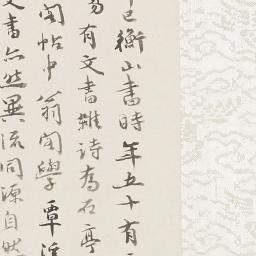 已衡山書時年五十有
有文書雜詩為石亭
閣帖中翁閣學覃溪
文書亦然異流同源自然